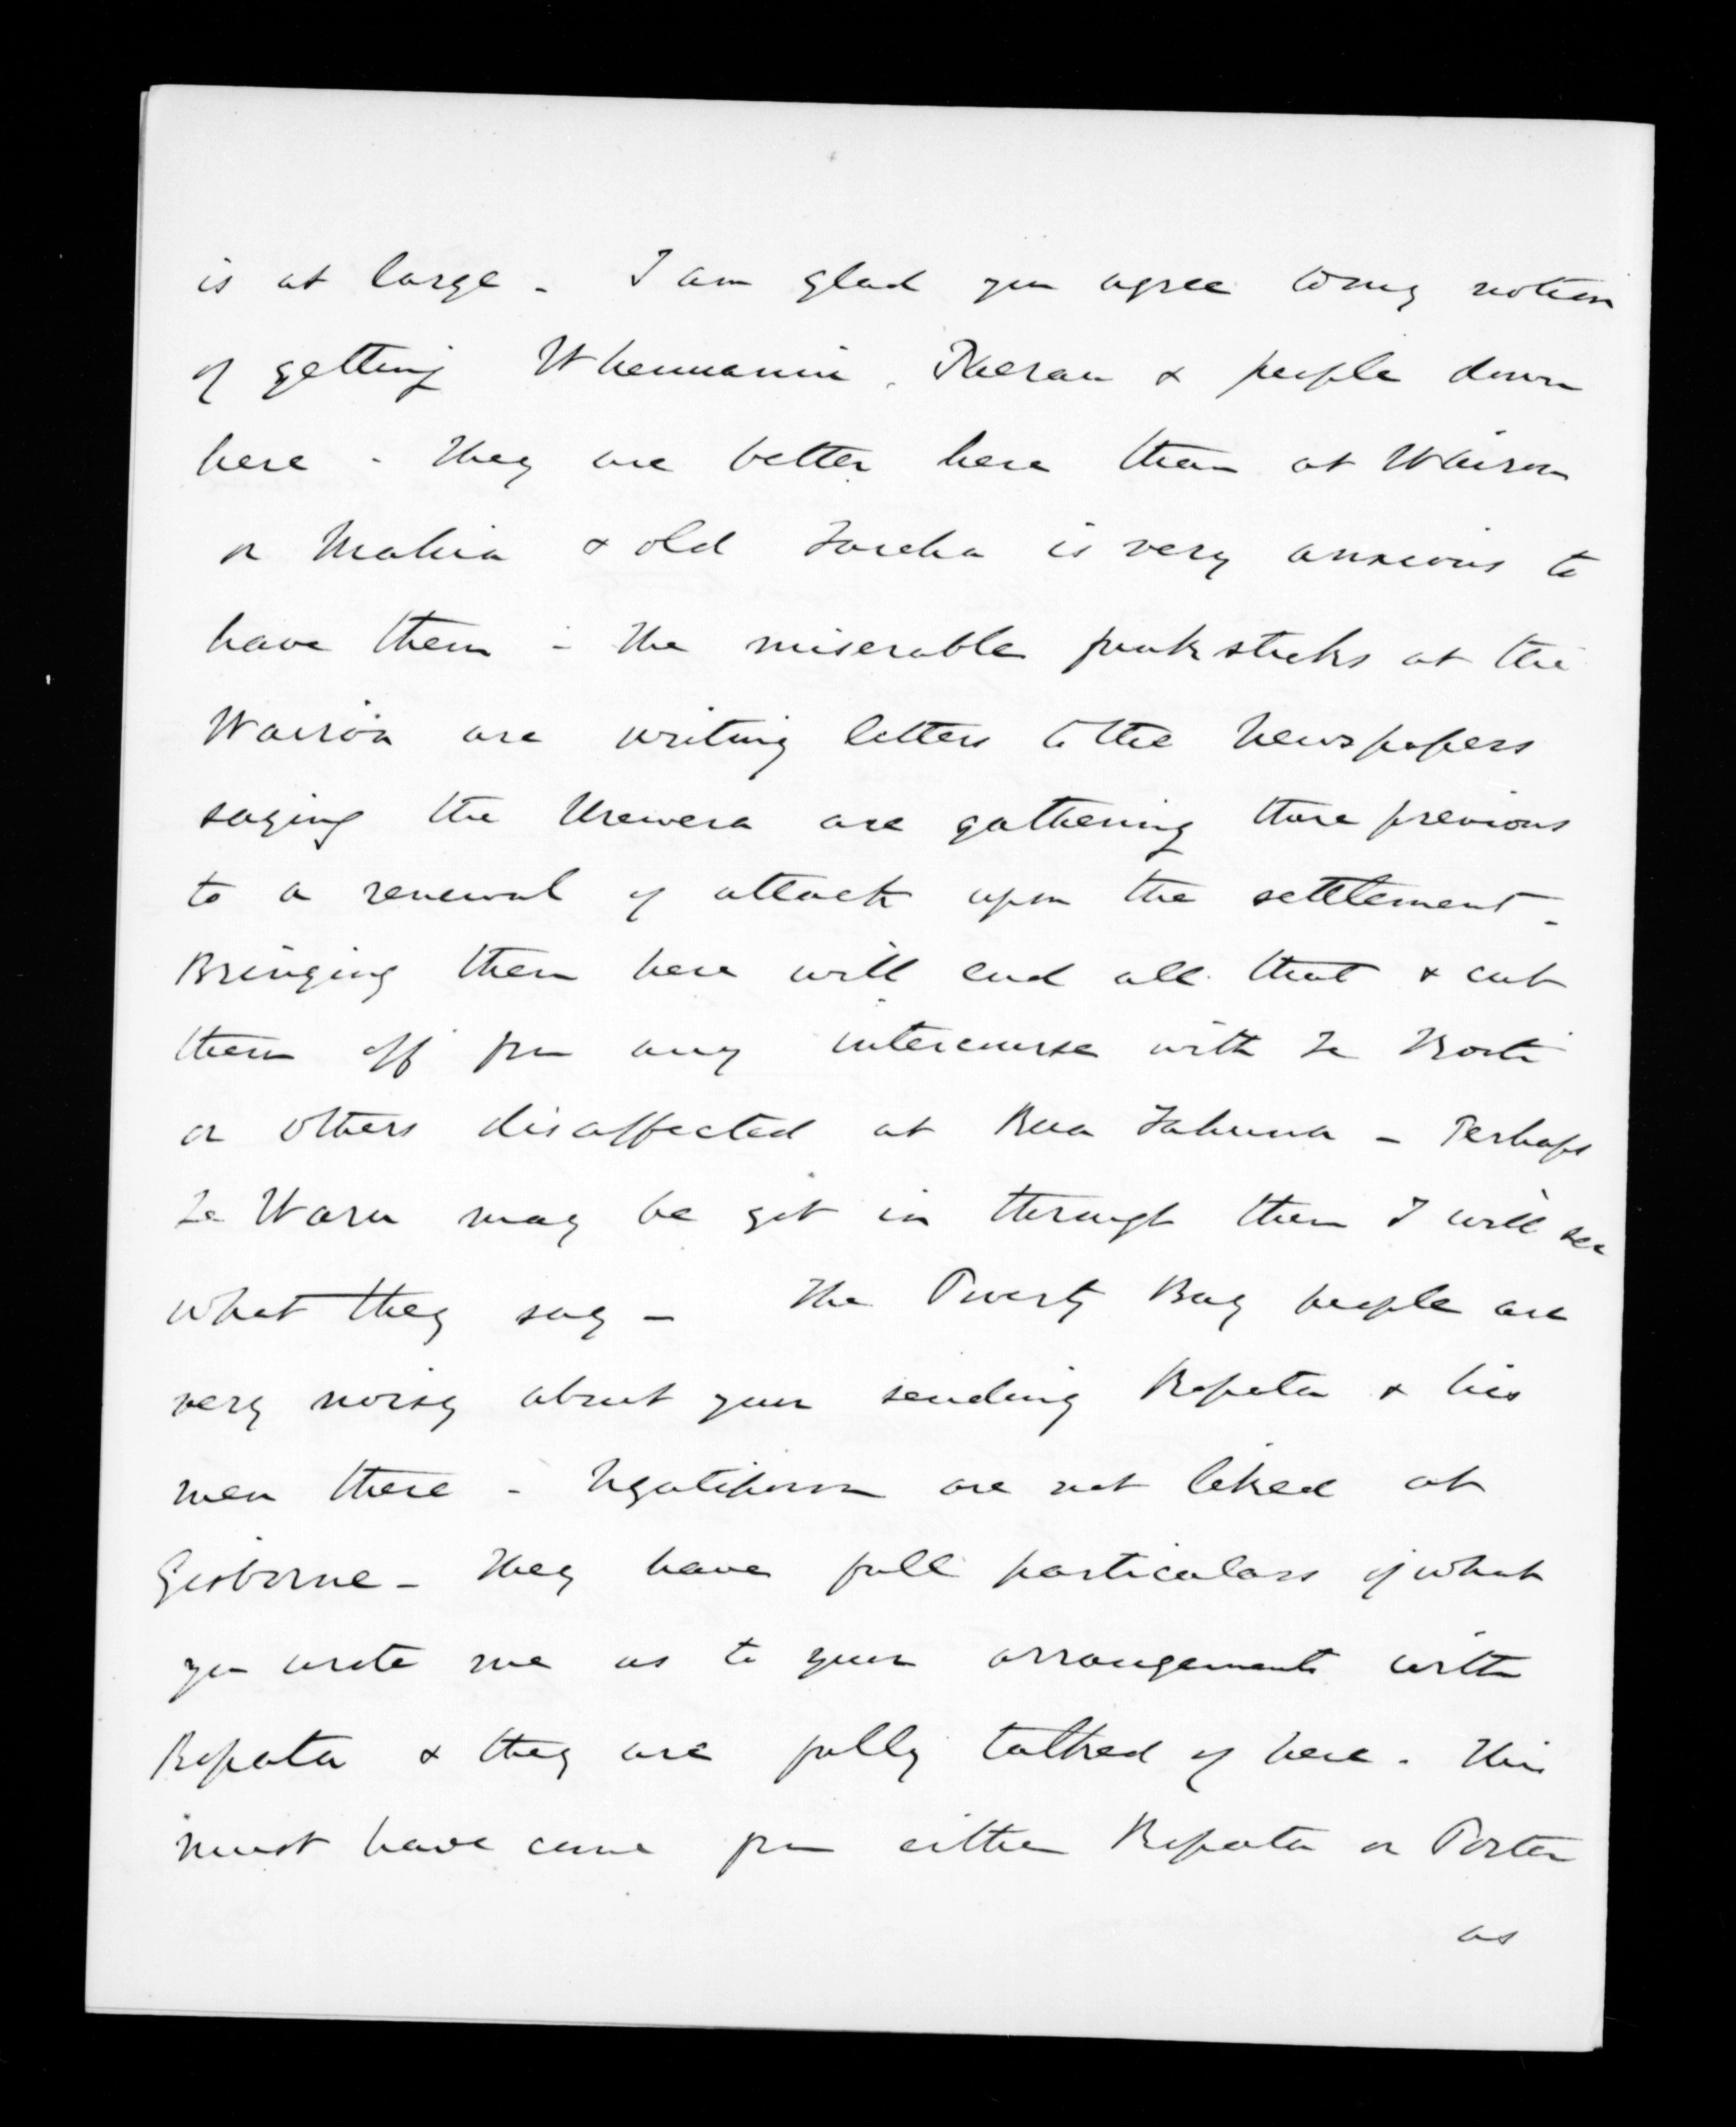 is at large - I am glad you agree to my notion
of getting Whenuanui, Paerau & people down
here - They are better here than at Wairoa
or Mahia & old Tareha is very anxious to
have them - The miserable funksticks at the
Wairoa are writing letters to the Newspapers
saying the Urewera are gathering there previous
to a renewal of attack upon the settlement -
Bringing them here will end all that & cut
them off from any intercourse with Te Kooti
or others disaffected at Rua Tahuna - Perhaps
Te Waru may be got in through them I will see
what they say - The Poverty Bay people are
very noisy about your sending Ropata & his
men there - Ngatiporou are not liked at
Gisborne - They have full particulars of what
you wrote me as to your arrangements with
Ropata & they are fully talked of here. This
must have come from either Ropata or Porter
as